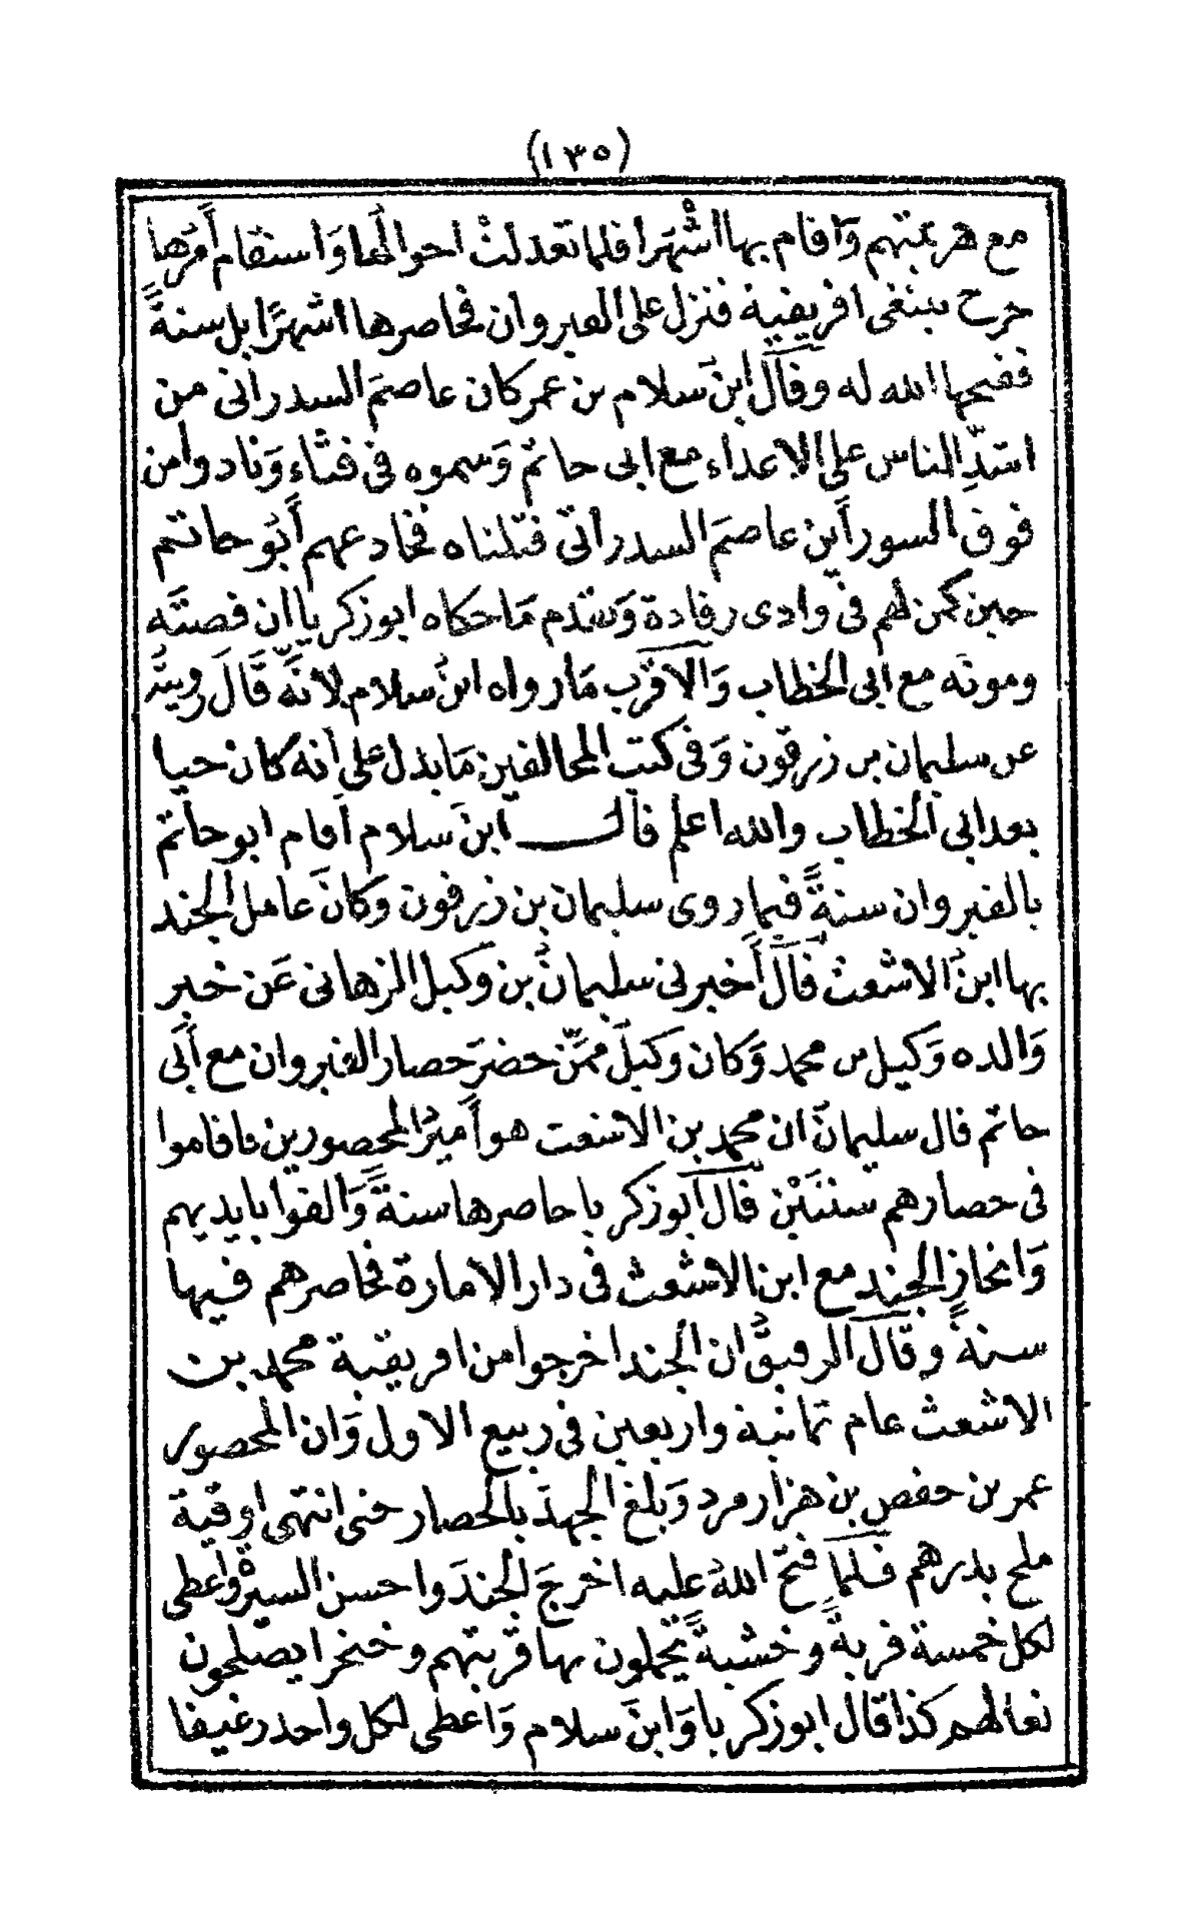 (١٣٥)
مع هزيمتهم وَاقام بها اشْهرا فلما تعدلتْ احوالُها وَاستقام أمْرُها
خرج يبتغى افريقية فنزل على القيروان فحاصرها اشهرًا بل سنةً
ففتحها الله له وقَالَ ابن سلام بن عمر كان عاصمَ السدرَانى من
اشدِّ الناس على الاعداء مع ابى حاتم وَسموه فى قثاء وَنادوا من
فوق السور أين عاصمَ السدراتى قتلناه فخادعهم أبُو حاتم
حين كمن لهم فى وادى رقادة وَتقدم مَا حكاه ابو زكريا ان قصتَه
وموته مع ابى الخطاب وَالاقرب مَا رواه ابنُ سلام لانَّه قَالَ رويتُه
عن سليمان بن زرقون وَفى كتب المخالفين مَا يدل على انه كان حيا
بعد ابى الخطاب والله اعلم قال ابنَ سلام أقام ابو حاتم
بالقيروان سنةً فيما روى سليمان بن زرقون وَكانَ عامل الجند
بها ابنُ الاشعث قَالَ أَخبرنى سليمانُ بن وكيل الزهانى عَن خبر
وَالده وَكيل بن محمد وَكان وَكيل ممَّن حضرَ حصار القيروان مع أبى
حاتم قال سليمانُ ان محمد بن الاشعت هو أميرُ المحصورين فاقاموا
فى حصارهم سنتَيْن قَالَ ابو زكريا حاصرها سنةً وَالقوا بايديهم
وَانحاز الجند مع ابن الاشعث فى دار الامارة فحاصرهم فيها
سنةً وقَالَ الرقيقُ ان الجند اخرجوا من افريقية محمد بن
الاشعث عام ثمانية واربعين فى ربيع الاول وَان المحصور
عمر بن حفص بن هزار مرد وَبلغ الجهدَ بالحصار حتى انتهى اوقية
ملح بدرهم فلمَّا فتحَ اللهُ عليه اخرجَ الجندَ واحسن السيرة واعطى
لكل خمسة قربةً وخشبةً يحملون بها قربتهم وخنجرا يصلحون
نعالهم كذا قال ابو زكريا وَابنَ سلام وَاعطى لكل واحد رغيفا